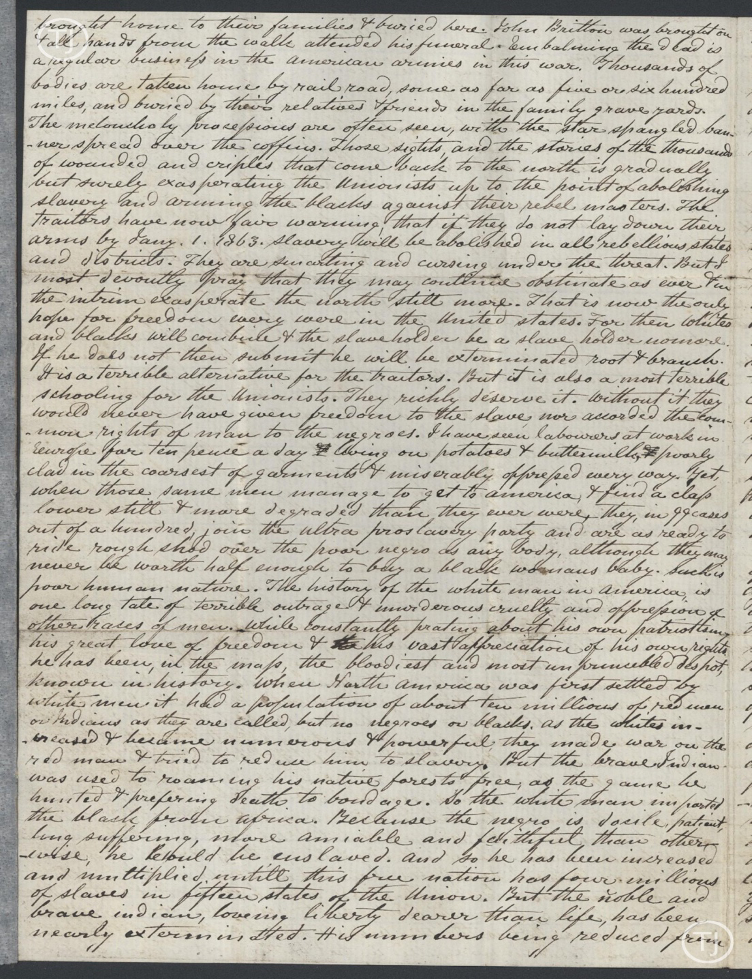 brought home to their families & buried here. John Britton was brought on
& all hands from the walk attended his funeral. Embalming the dead is
a regular business in the american armies in this war. Thousands of
bodies are taken home by rail road, some as far as five or six hundred
miles, and buried by their relatives & friends in the family grave yards.
The meloncholy processions are often seen, with the star spangled ban-
-ner spread over the coffins. Those sights, and the stories of the thousands
of wounded and criples that come back to the north is gradually
but surely exasperating the Unionists up to the point of abolishing
slavery and arming the blacks against their rebel masters. The
traitors have now fair warning, that if they do not lay down their
arms by Jany. 1. 1863. slavery will be abolished in all rebellious states
and districts. They are smarting and cursing under the threat. But I
most devoutly pray that they may continue obstinate as ever & in
the intrim exasperate the north still more. That is now the only
hope for freedom every were in the United states. For then whites
and blacks will combine & the slaveholder be a slave holder nomore.
If he does not then submit he will be exterminated root & branch.
It is a terrible alternative for the traitors. But it is also a most terrible
schooling for the Unionists. They richly deserve it. Without it they
would never have given freedom to the slave, nor accorded the com-
-mon rights of man to the negroes. I have seen labourers at work in
Europe for ten pense a day living on potatoes & buttermilk, poorly
clad in the coarsest of garments & miserably oppresed every way. Yet,
when those same men manage to get to america, & find a class
lower still & more degraded than they ever were, they, in 99 cases
out of a hundred, join the ultra proslavery party and are as ready to
ride rough shod over the poor negro as any body, although they may
never be worth half enough to buy a black womans baby. Such is
poor human nature. The history of the white man in america, is
one long tale of terrible outrage & murderous cruelty and oppression of
other races of men. While constantly prating about his own patriotism,
his great love of freedom & his vast appreciation of his own rights,
he has been, in the mass, the bloodiest and most unprincebled despot,
known in history. When North america was first settled by
white men it had a population of about ten millions of red men
or Indians as they are called, but no negroes or blacks. As the whites in-
-creased & became numerous & powerful they made war on the
red man & tried to reduce him to slavery. But the brave Indian
was used to roaming his native forests free, as the game he
hunted & prefering death to bondage. So the white man imported
the black from africa. Because the negro is docile, patient,
long suffering, more amiable and faithful than other-
-wise, he could be enslaved. And so he has been increased
and multiplied, untill this free nation has four millions
of slaves in fifteen states of the Union. But the noble and
brave indian, loveing liberty dearer than life, has been
nearly exterminated. His numbers being reduced from
TJ